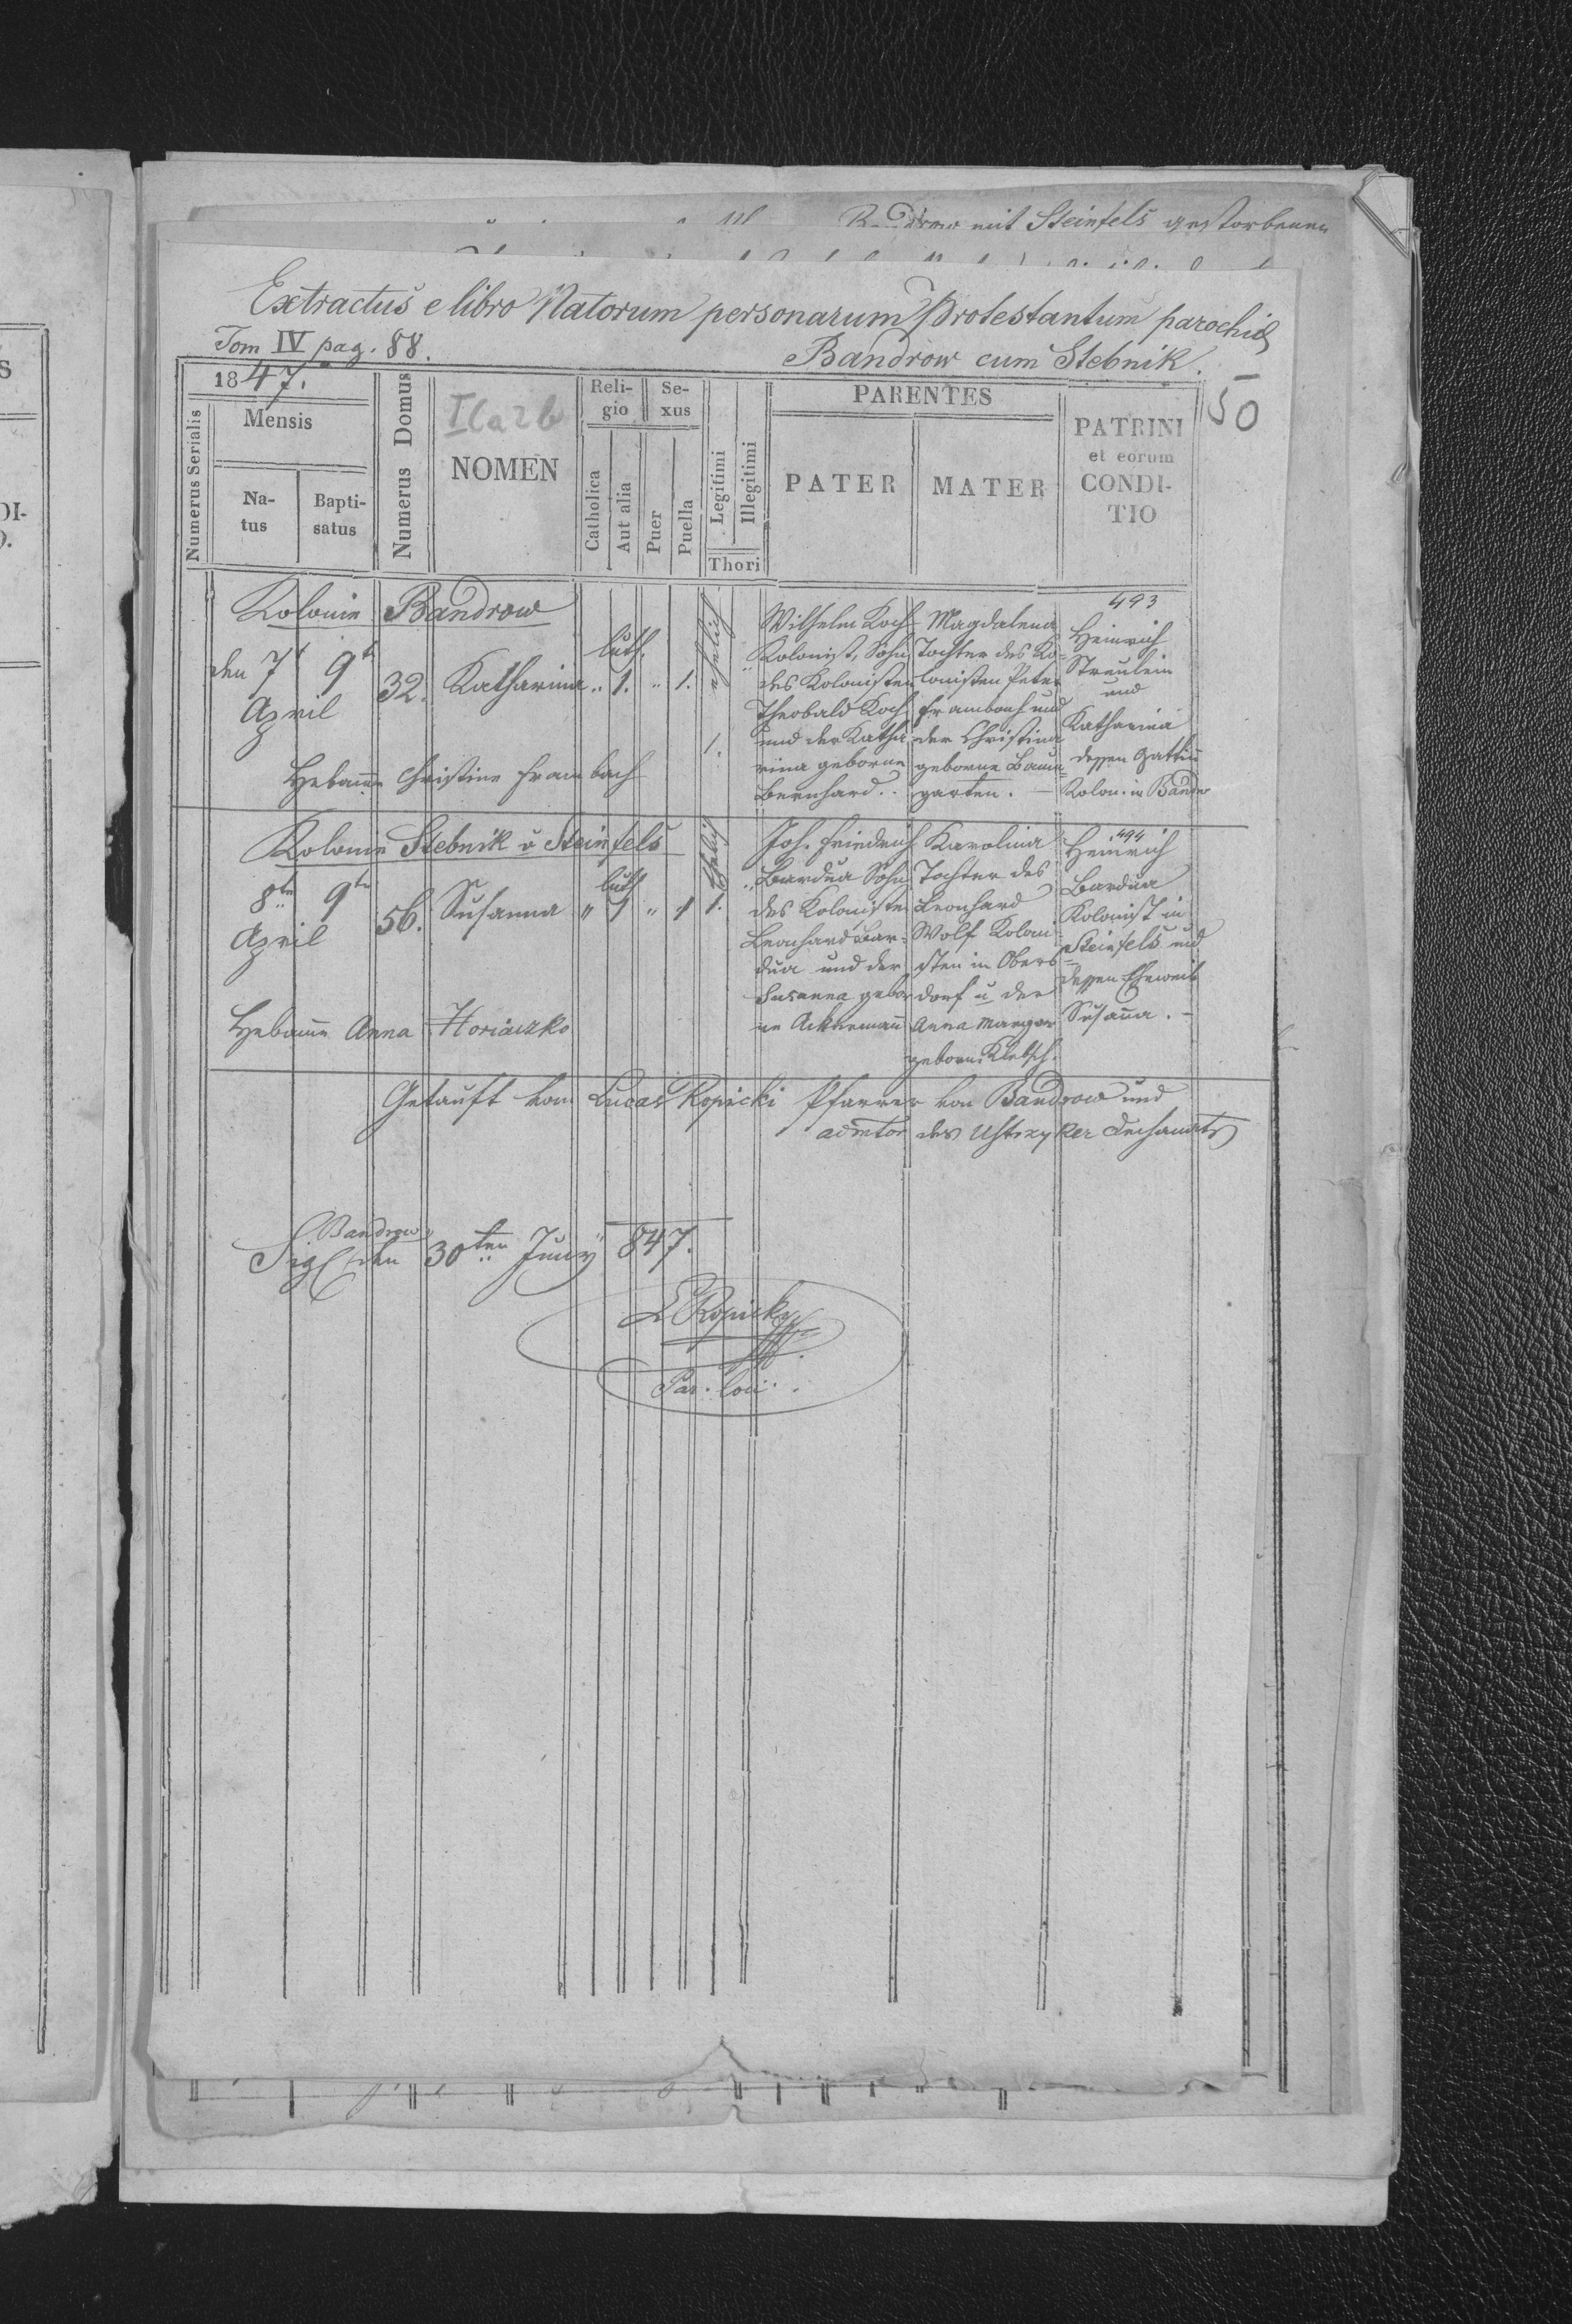 Bandrow mit Steinfels gestorbenen
Extractus e libro Natorum personarum Protestantum parochia
Tom IV pag. 88.
Bandrow cum Stebnik.
1847.
50
Numerus Serialis
Mensis
Na-
tus
Bapti-
satus
Numerus Domus
NOMEN
Reli-
gio
Catholica
Aut alia
Se-
xus
Puer
Puella
Legitimi
Illegitimi
Thori
PARENTES
PATER
MATER
PATRINI
et eorum
CONDI-
TIO
Kolonie Bandrow
den 7t 9t
April
32.
Katharina
" luth. 1. " 1.
ehelich
1.
Wilhelm Koch
Kolonist, Sohn
des Kolonisten
Theobald Koch
und der Katha
rina geborne
Bernhard..
Magdalena
Tochter des Ko-
lonisten Peter
Frambach und
der Christina
geborne Baum-
garten. —
493
Heinrich
Streulein
und
Katharina
dessen Gattin
Kolon. in Bandr
Hebamme Christine Frambach
Kolonie Stebnik u Steinfels
8ten 9ten
April
56.
Susanna
" luth 1 " 1
ehelich
1.
Joh. Friedrich
Bardua Sohn
des Kolonisten
Leonhard Bar-
dua und der
Susanna gebor
ne Ackermann
Karolina
Tochter des
Leonhard
Wolf Koloni
sten in Obers-
dorf u der
Anna Margar
geborn. Kletsch.
494
Heinrich
Bardua
Kolonist in
Steinfels und
dessen Eheweib
Susanna. —
Hebamme Anna Horiaczko
Getauft vom Lucas Ropicki Pfarrer von Bandrow und
des Ustrzyker Dechanats
Bandrow
Sigl den 30ten Juny 847.
L Ropicky
Par. loci.